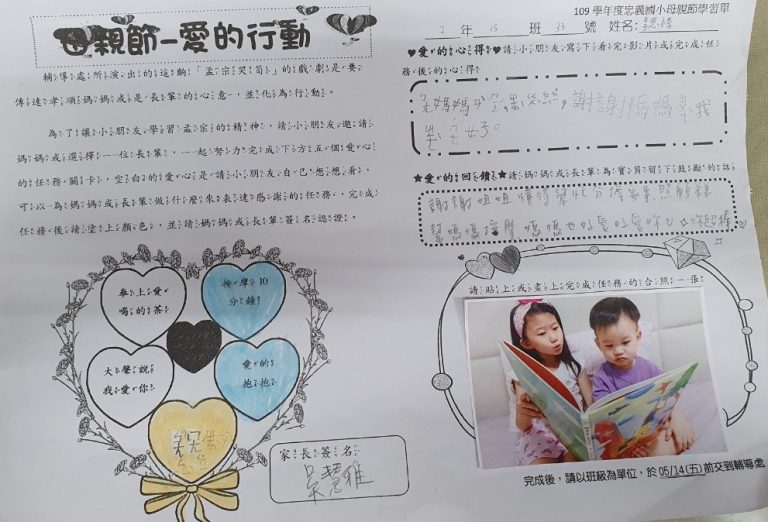 母親節－愛的行動
輔導處所演出的這齣「孟宗哭筍」的戲劇是要
傳達孝順媽媽或是長輩的心意，並化為行動。
為了讓小朋友學習孟宗的精神，請小朋友邀請
媽媽或選擇一位長輩，一起努力完成下方五個愛心
的任務關卡，空白的愛心是請小朋友自己想想看，
可以為媽媽或長輩做什麼來表達感謝的任務，完成
任務後請塗上顏色，並請媽媽或長輩簽名認證。
奉上愛
喝的茶
按摩10
分鐘
大聲說
我愛你
愛的
抱抱
家長簽名
吳慧雅
109 學年度忠義國小母親節學習單
2 年 15 班 33 號 姓名:
♥愛的心得♥請小朋友寫下看完影片或完成任
務後的心得
謝謝媽媽
★愛的回饋★請媽媽或長輩為寶貝留下鼓勵的話
謝謝姐姐懂得幫忙分擔家事照顧妹
幫媽媽按摩 媽媽也好愛好愛你
請貼上或畫上完成任務的合照一張
完成後，請以班級為單位，於 05/14(五)前交到輔導處